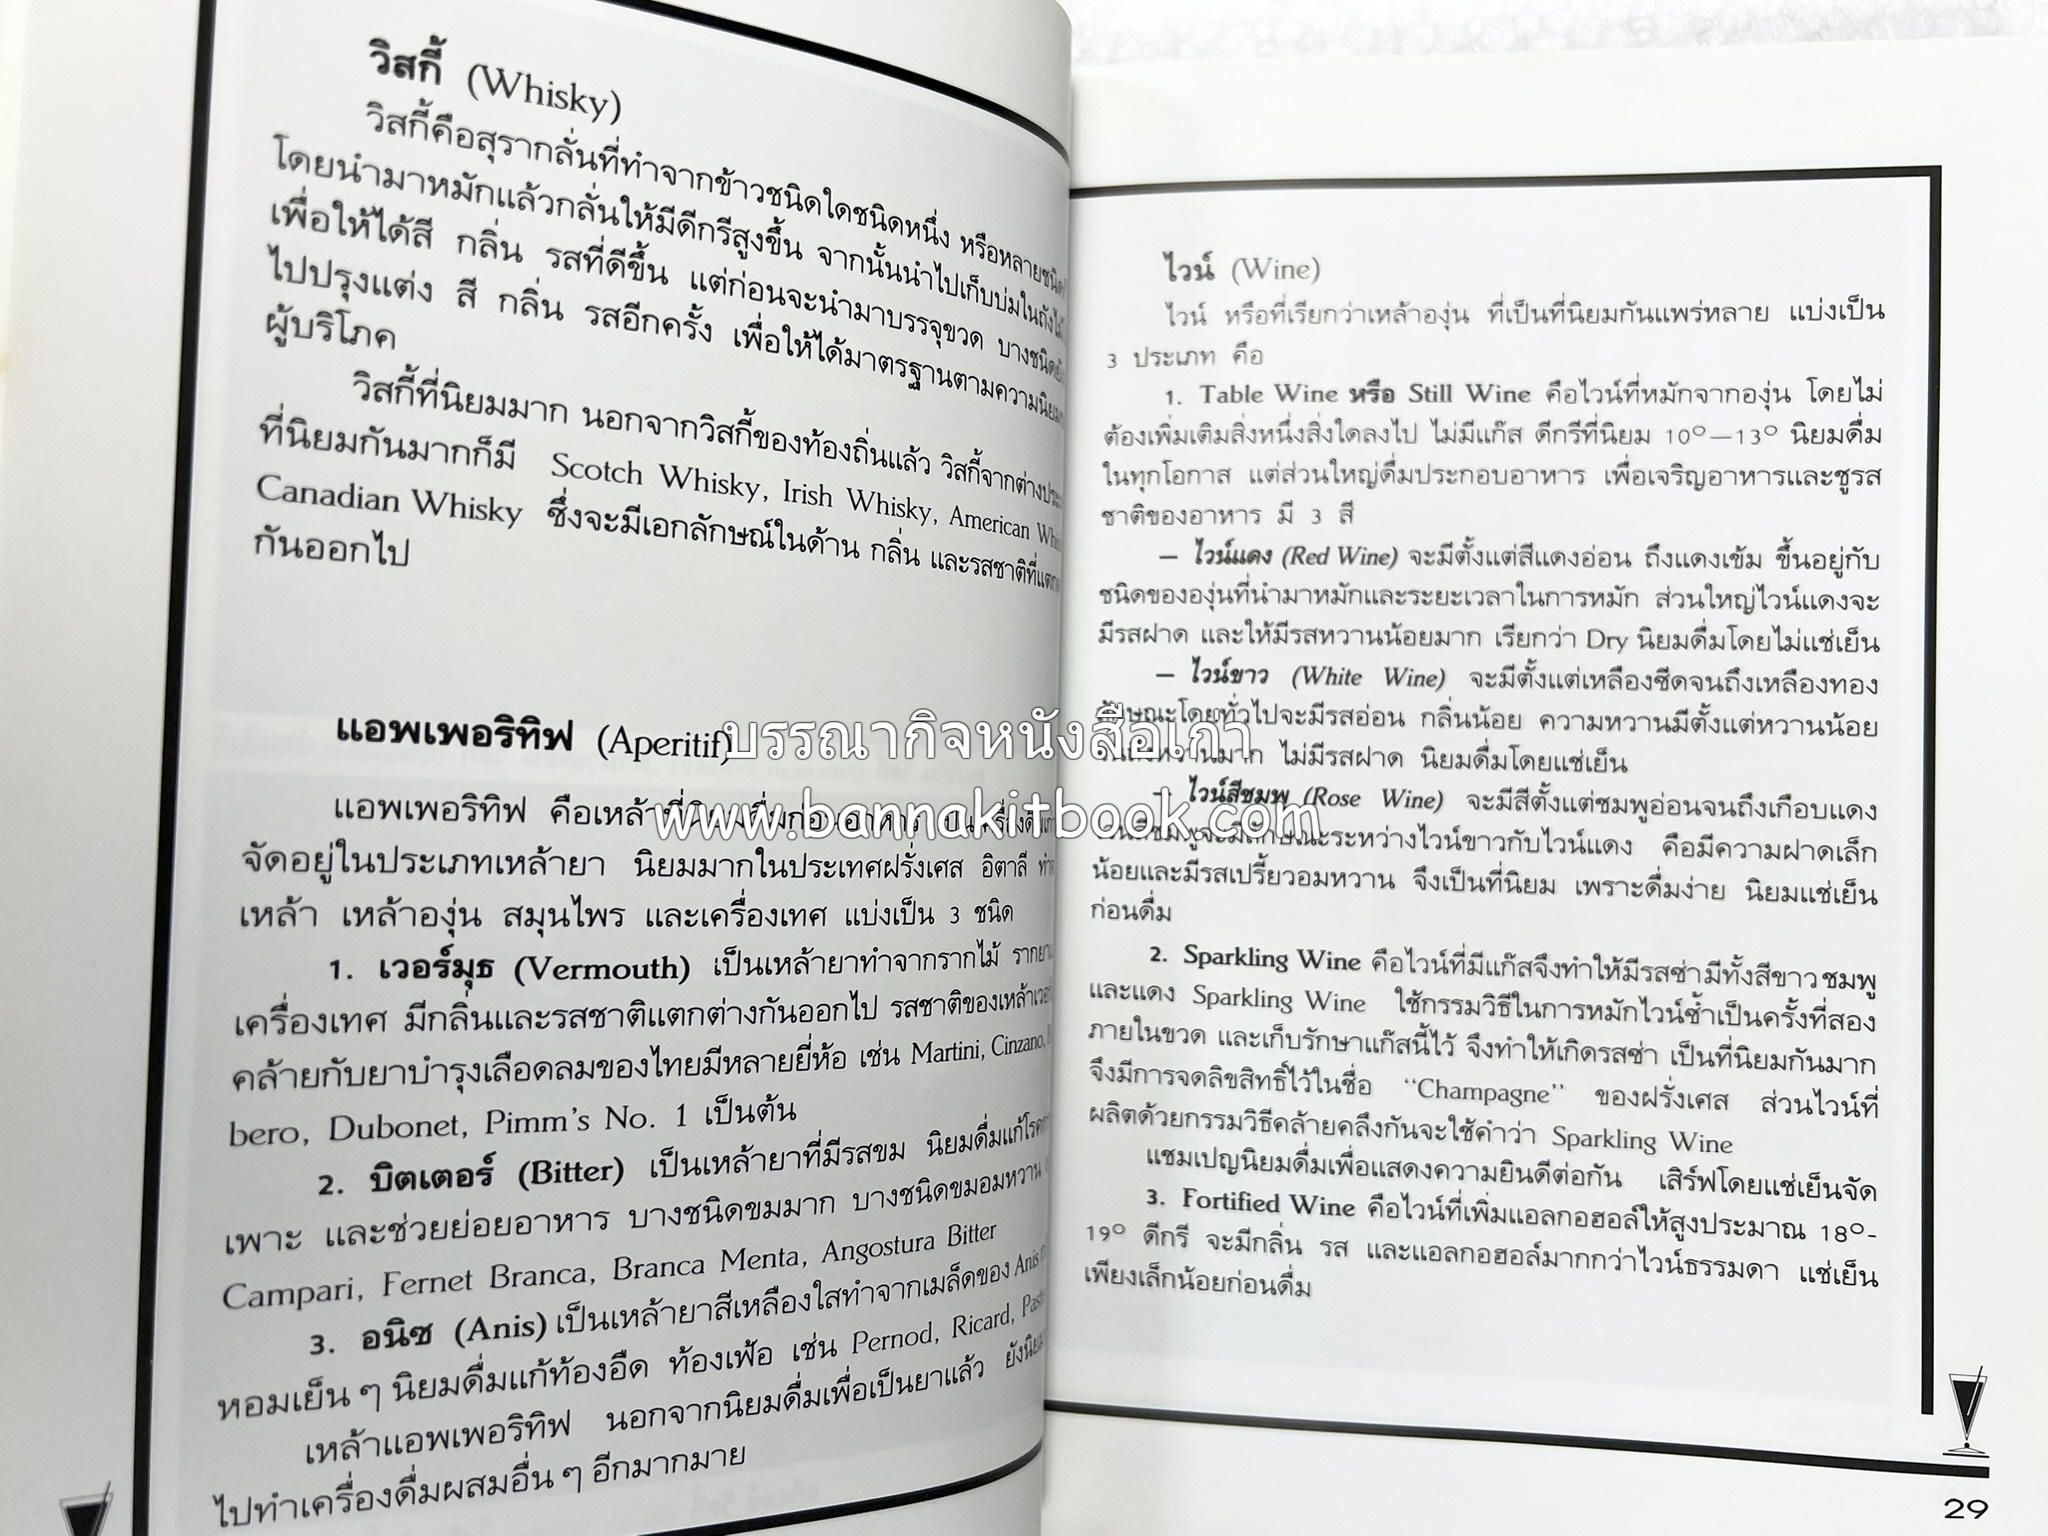 วิสกี้ (Whisky)
วิสกี้คือสุรากลั่นที่ทำจากข้าวชนิดใดชนิดหนึ่ง หรือหลายชนิด
โดยนำมาหมักแล้วกลั่นให้มีดีกรีสูงขึ้น จากนั้นนำไปเก็บบ่มในถังไม้
เพื่อให้ได้สี กลิ่น รสที่ดีขึ้น แต่ก่อนจะนำมาบรรจุขวด บางชนิด
ไปปรุงแต่ง สี กลิ่น รสอีกครั้ง เพื่อให้ได้มาตรฐานตามความนิยม
ผู้บริโภค
วิสกี้ที่นิยมมาก นอกจากวิสกี้ของท้องถิ่นแล้ว วิสกี้จาก
ที่นิยมกันมากก็มี Scotch Whisky, Irish Whisky, American
Canadian Whisky ซึ่งจะมีเอกลักษณ์ในด้าน กลิ่น และรสชาติที่
กันออกไป
แอพเพอริทิฟ (Aperitif)
แอพเพอริทิฟ คือเหล้าที่นิยมดื่มก่อนอาหาร เป็น
จัดอยู่ในประเภทเหล้ายา นิยมมากในประเทศฝรั่งเศส อิตาลี
เหล้า เหล้าองุ่น สมุนไพร และเครื่องเทศ แบ่งเป็น 3 ชนิด
1. เวอร์มุธ (Vermouth) เป็นเหล้ายาทำจากรากไม้
เครื่องเทศ มีกลิ่นและรสชาติแตกต่างกันออกไป รสชาติของเหล้า
คล้ายกับยาบำรุงเลือดลมของไทยมีหลายยี่ห้อ เช่น Martini, Cinzano,
bero, Dubonet, Pimm's No. 1 เป็นต้น
2. บิตเตอร์ (Bitter) เป็นเหล้ายาที่มีรสขม นิยมดื่มแก้โรค
เพาะ และช่วยย่อยอาหาร บางชนิดขมมาก บางชนิดขมอมหวาน
Campari, Fernet Branca, Branca Menta, Angostura Bitter
3. อนิซ (Anis) เป็นเหล้ายาสีเหลืองใสทำจากเมล็ดของ Anis
หอมเย็น ๆ นิยมดื่มแก้ท้องอืด ท้องเฟ้อ เช่น Pernod, Ricard,
เหล้าแอพเพอริทิฟ นอกจากนิยมดื่มเพื่อเป็นยาแล้ว ยังนิยม
ไปทำเครื่องดื่มผสมอื่น ๆ อีกมากมาย
ไวน์ (Wine)
ไวน์ หรือที่เรียกว่าเหล้าองุ่น ที่เป็นที่นิยมกันแพร่หลาย แบ่งเป็น
3 ประเภท คือ
1. Table Wine หรือ Still Wine คือไวน์ที่หมักจากองุ่น โดยไม่
ต้องเพิ่มเติมสิ่งหนึ่งสิ่งใดลงไป ไม่มีแก๊ส ดีกรีที่นิยม 10°—13° นิยมดื่ม
ในทุกโอกาส แต่ส่วนใหญ่ดื่มประกอบอาหาร เพื่อเจริญอาหารและชูรส
ชาติของอาหาร มี 3 สี
— ไวน์แดง (Red Wine) จะมีตั้งแต่สีแดงอ่อน ถึงแดงเข้ม ขึ้นอยู่กับ
ชนิดขององุ่นที่นำมาหมักและระยะเวลาในการหมัก ส่วนใหญ่ไวน์แดงจะ
มีรสฝาด และให้มีรสหวานน้อยมาก เรียกว่า Dry นิยมดื่มโดยไม่แช่เย็น
— ไวน์ขาว (White Wine) จะมีตั้งแต่เหลืองซีดจนถึงเหลืองทอง
ลักษณะโดยทั่วไปจะมีรสอ่อน กลิ่นน้อย ความหวานมีตั้งแต่หวานน้อย
หวานมาก ไม่มีรสฝาด นิยมดื่มโดยแช่เย็น
— ไวน์สีชมพู (Rose Wine) จะมีสีตั้งแต่ชมพูอ่อนจนถึงเกือบแดง
ไวน์สีชมพูจะมีลักษณะระหว่างไวน์ขาวกับไวน์แดง คือมีความฝาดเล็ก
น้อยและมีรสเปรี้ยวอมหวาน จึงเป็นที่นิยม เพราะดื่มง่าย นิยมแช่เย็น
ก่อนดื่ม
2. Sparkling Wine คือไวน์ที่มีแก๊สจึงทำให้มีรสซ่ามีทั้งสีขาว ชมพู
และแดง Sparkling Wine ใช้กรรมวิธีในการหมักไวน์ซ้ำเป็นครั้งที่สอง
ภายในขวด และเก็บรักษาแก๊สนี้ไว้ จึงทำให้เกิดรสซ่า เป็นที่นิยมกันมาก
จึงมีการจดลิขสิทธิ์ไว้ในชื่อ "Champagne" ของฝรั่งเศส ส่วนไวน์ที่
ผลิตด้วยกรรมวิธีคล้ายคลึงกันจะใช้คำว่า Sparkling Wine
แชมเปญนิยมดื่มเพื่อแสดงความยินดีต่อกัน เสิร์ฟโดยแช่เย็นจัด
3. Fortified Wine คือไวน์ที่เพิ่มแอลกอฮอล์ให้สูงประมาณ 18°-
19° ดีกรี จะมีกลิ่น รส และแอลกอฮอล์มากกว่าไวน์ธรรมดา แช่เย็น
เพียงเล็กน้อยก่อนดื่ม
29
บรรณากิจหนังสือเก่า
www.bannakitbook.com